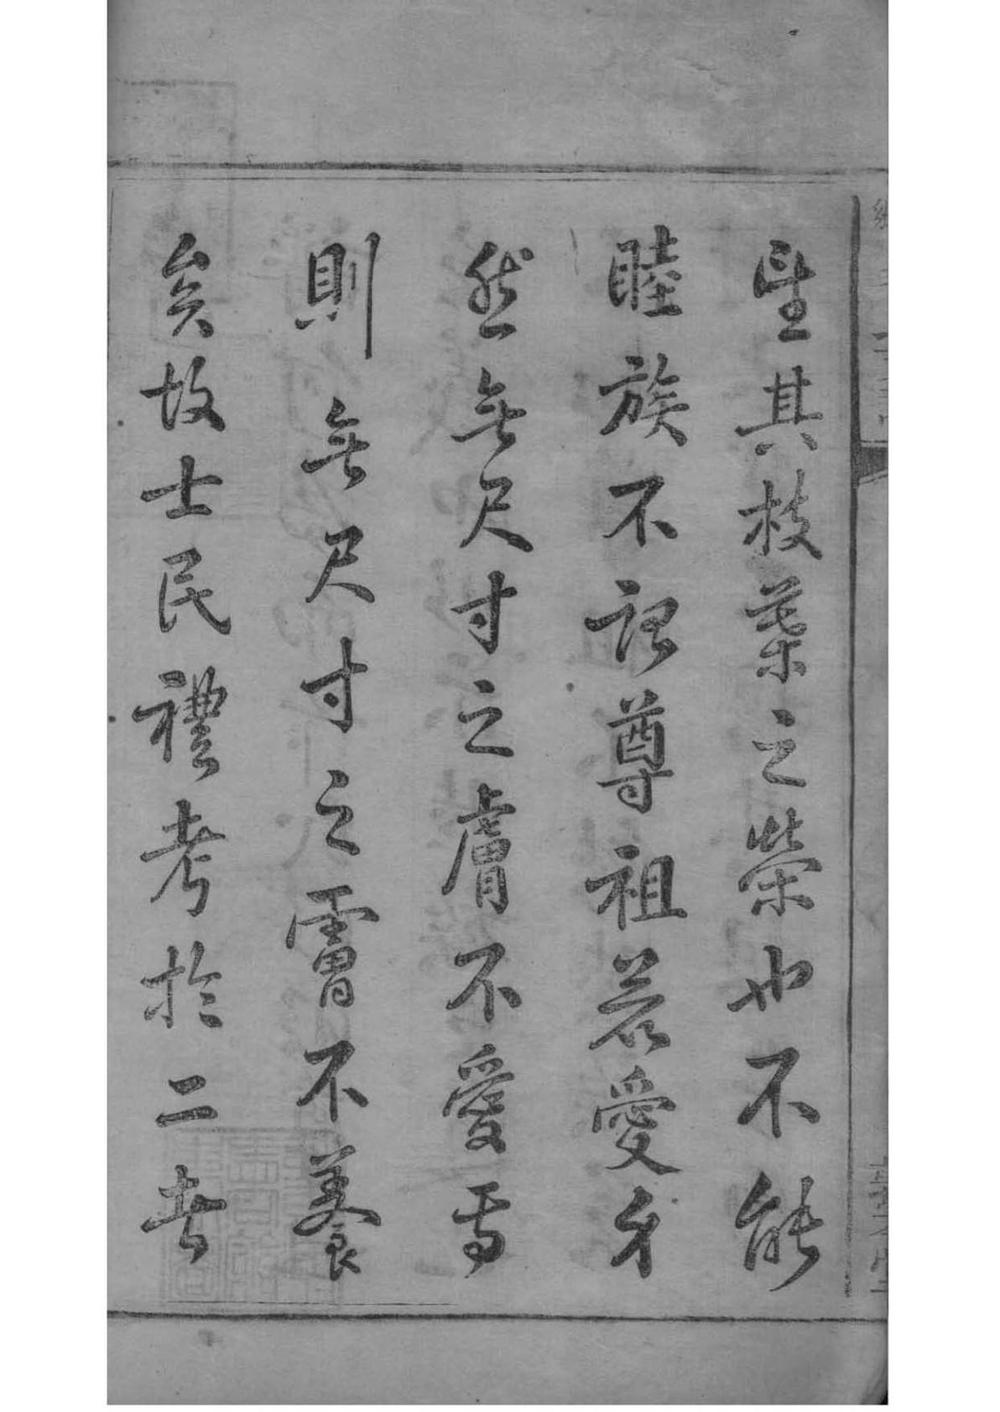 望其枝葉之榮也不能
睦族不記尊祖若愛身
然無尺寸之膚不愛焉
則無尺寸之膚不養
矣故士民禮考於二者